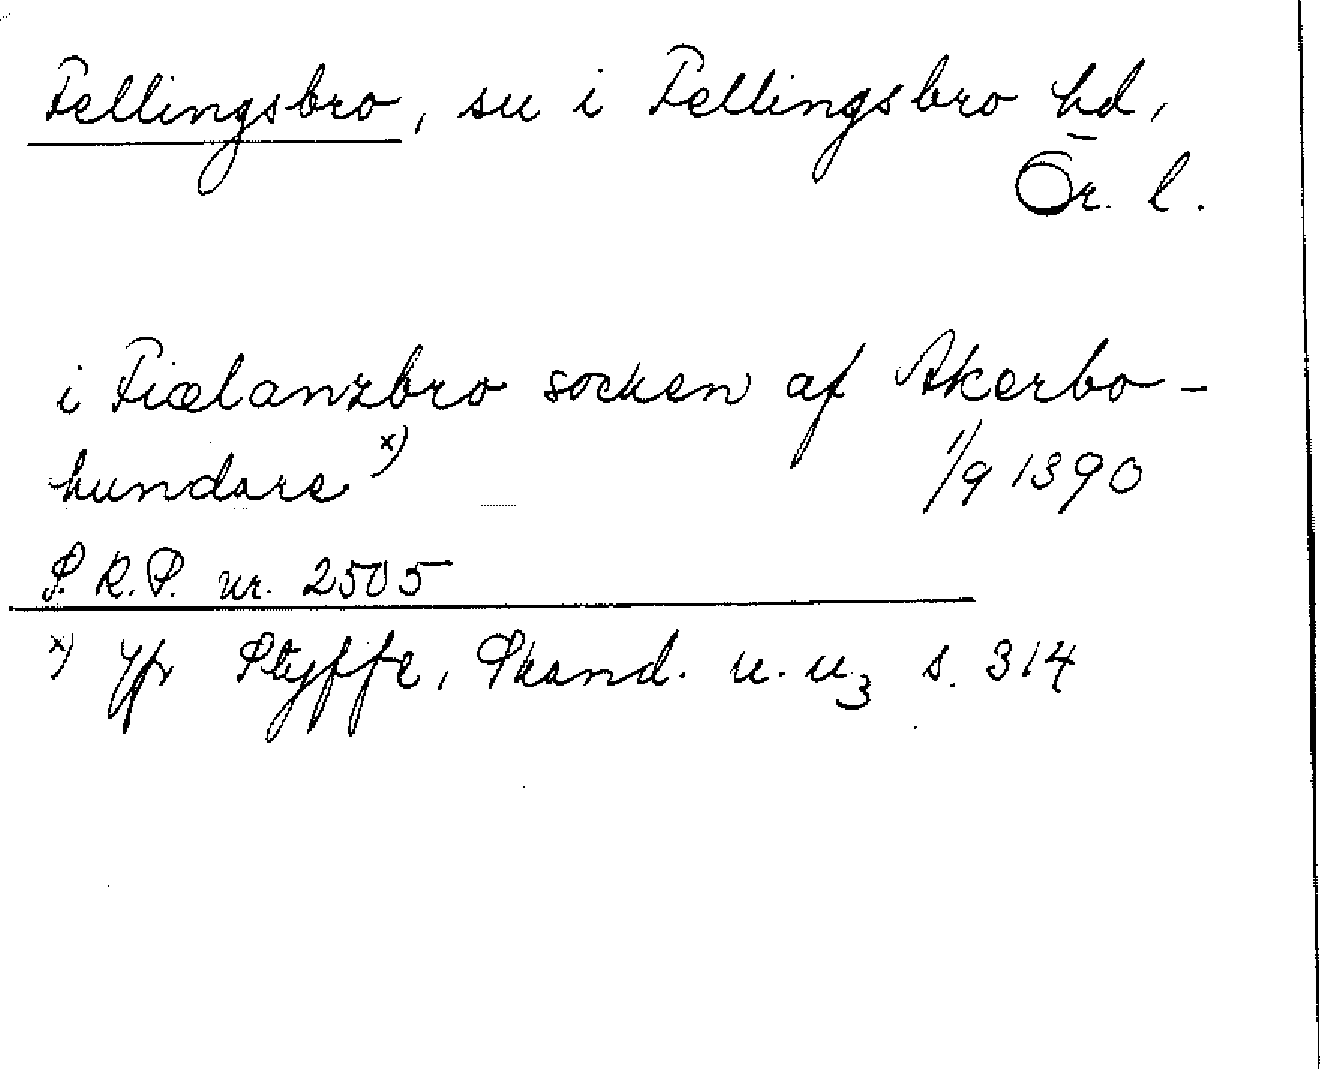 Fellingsbro, sn i Fellingsbro hd,
Ör. l.
i Fiælanzbro socken af Akerbo-
hundare x) 1/9 1390
S. R. P. nr. 2505
x) Jfr Styffe, Skand. u. u3 s. 314